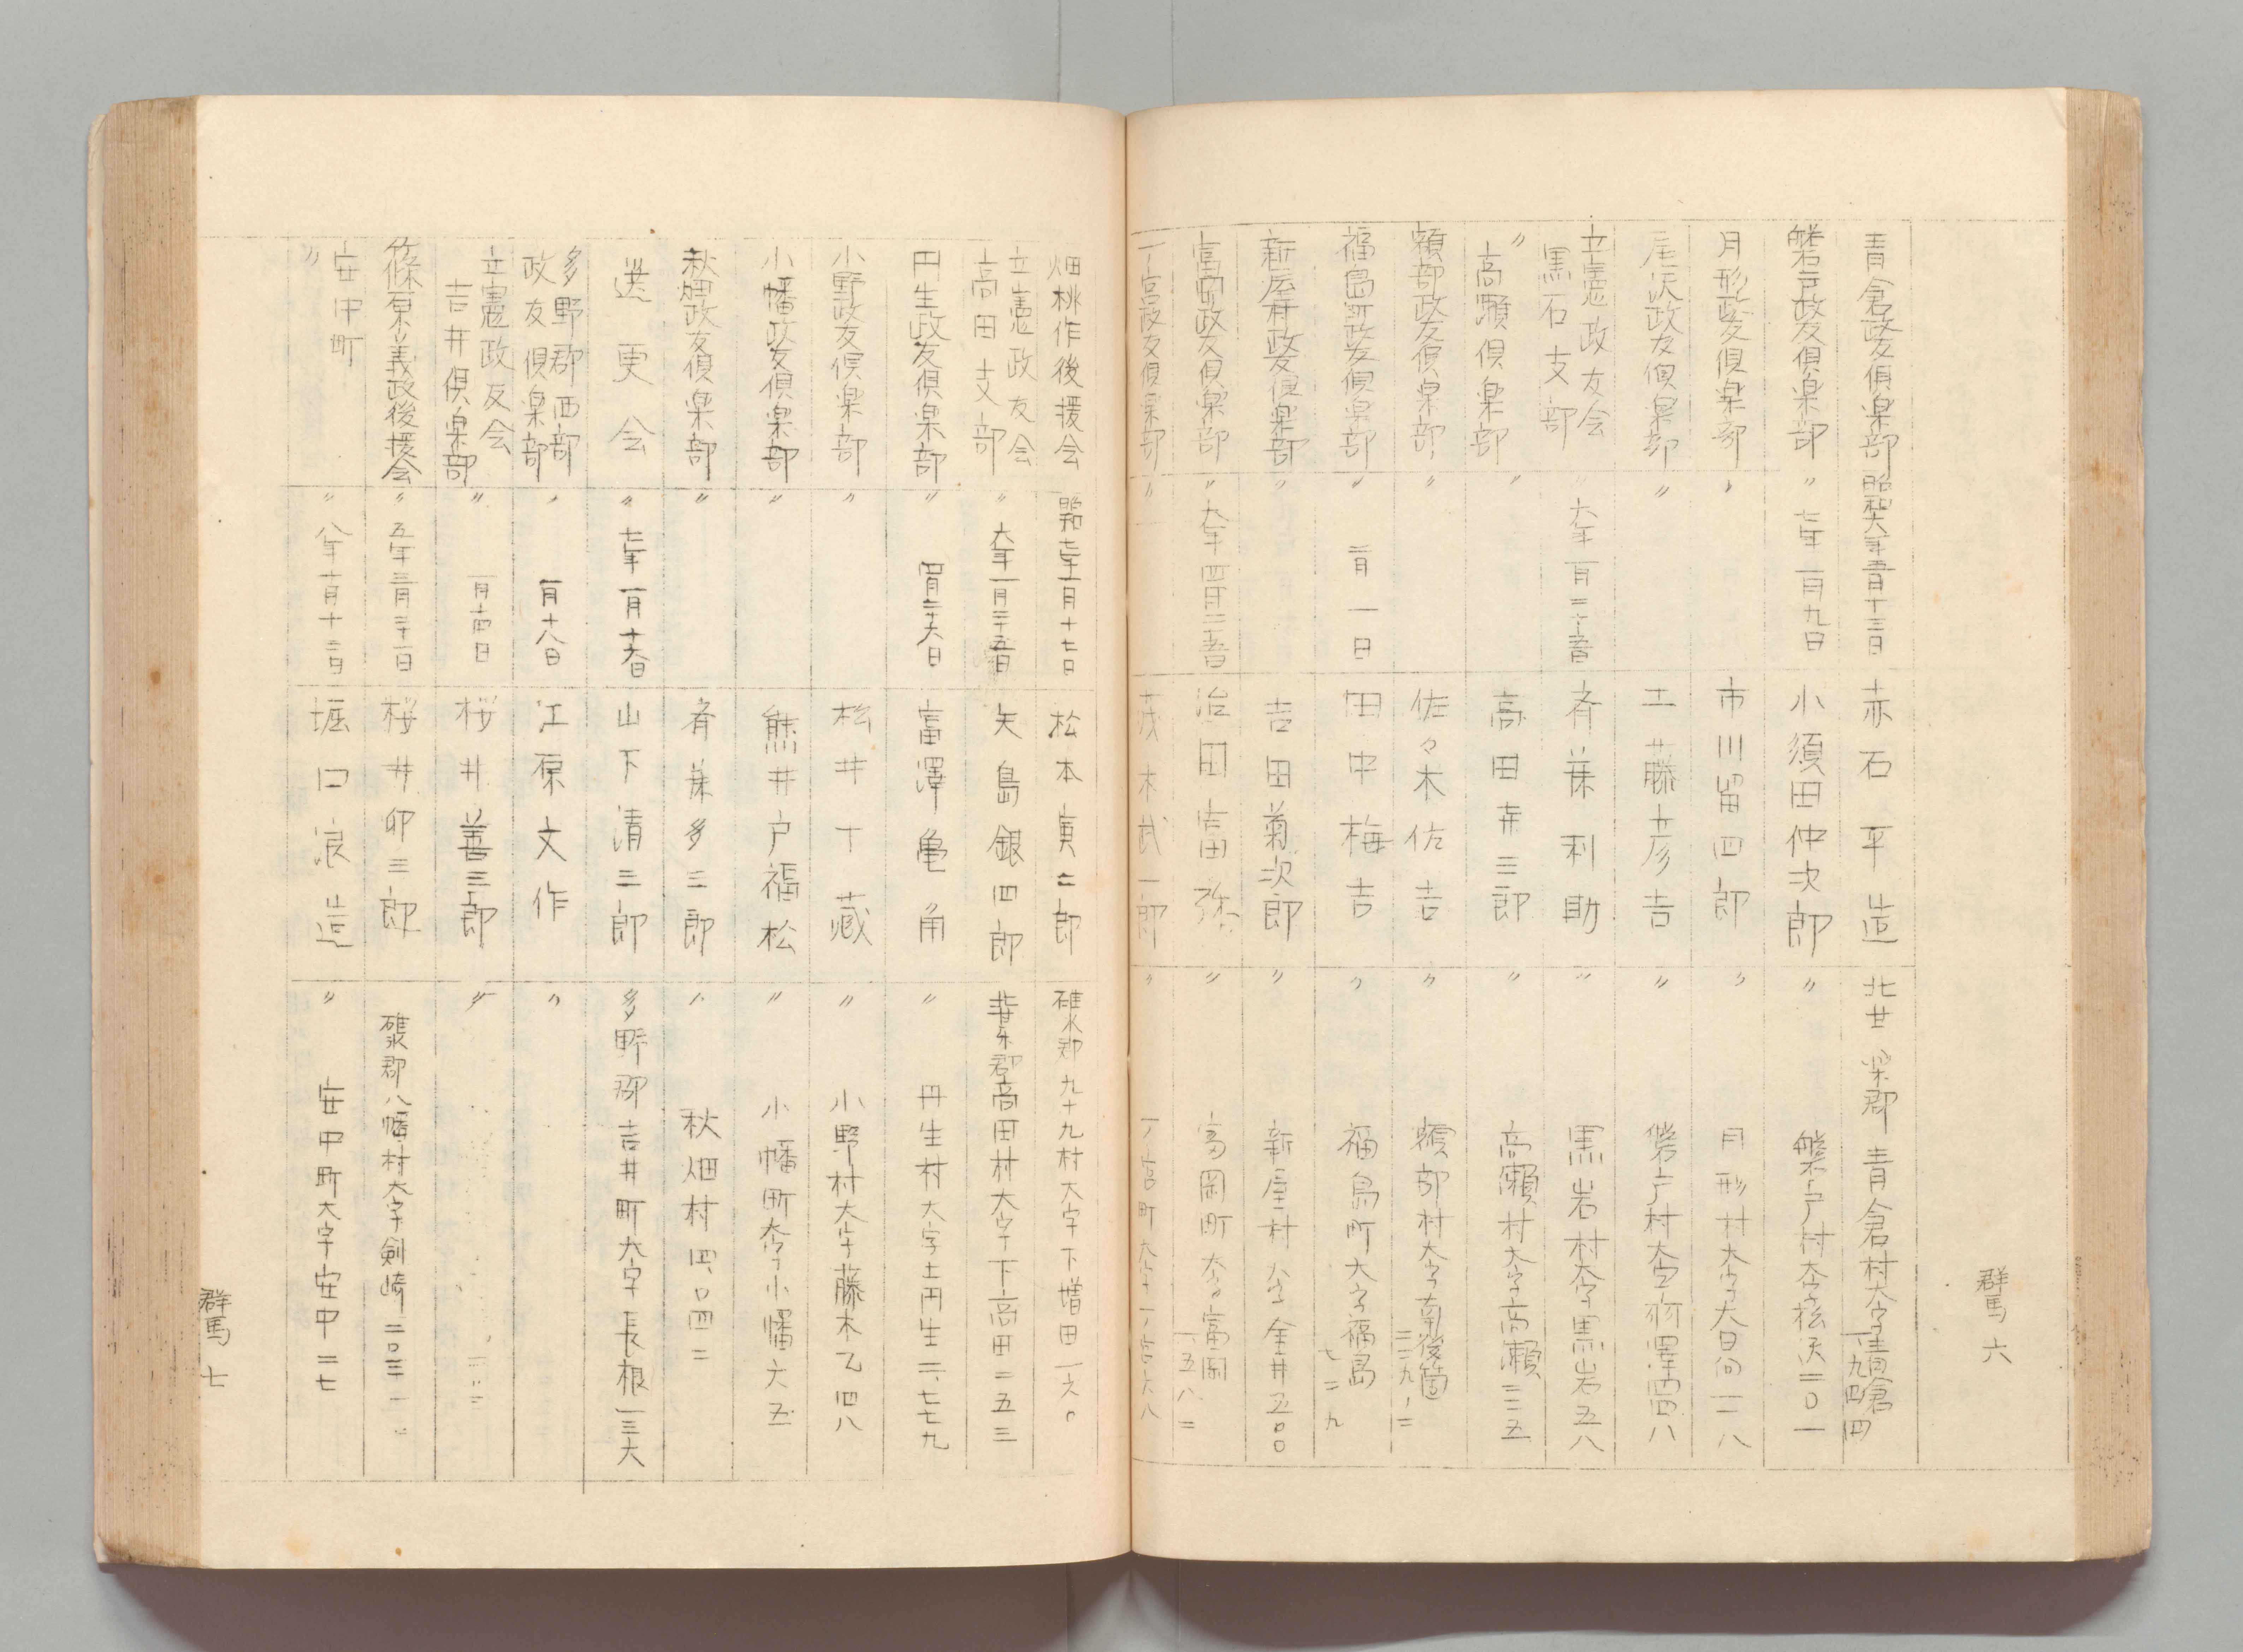 群馬 六
青倉政友倶楽部 昭和六年五月十三日 赤石平造 北甘楽郡 青倉村大字青倉一九四四
磐戸政友倶楽部 〃 七年一月九日 小須田仲次郎 〃 磐戸村大字桧沢二〇一
月形政友倶楽部 〃 市川留四郎 〃 月形村大字大日向一一八
尾沢政友倶楽部 〃 工藤彦吉 〃
立憲政友会黒石支部 〃 六年一月二十五日 斉藤利助 〃 黒岩村大字黒岩五八
〃高瀬倶楽部 〃 高田寿三郎 〃 高瀬村大字高瀬三三五
額部政友倶楽部 〃 佐々木佐吉 〃 額部村大字南後箇
福島町政友倶楽部 〃 二月一日 田中梅吉 〃 福島町大字福島七二九
新屋村政友倶楽部 〃 吉田菊次郎 〃 新屋村大字金井五〇〇
富岡政友倶楽部 〃 九年四月二十五日 冶田富弥 〃 富岡町大字富岡一五八二
一ノ宮政友倶楽部 〃 茂木武一郎 〃 一ノ宮町大字一ノ宮六八
畑桃作後援会 昭和七年一月十七日 松本庚二郎 碓氷郡 九十九村大字下増田一六〇
立憲政友会高田支部 〃 六年一月二十五日 矢島銀四郎 北甘楽郡高田村大字下高田二五三
丹生政友倶楽部 〃 四月二十六日 富澤亀角 〃 丹生村大字上丹生二、七七九
小野政友倶楽部 〃 松井丁蔵 〃 小野村大字藤木乙四八
小幡政友倶楽部 〃 熊井戸福松 〃 小幡町大字小幡六五
秋畑政友倶楽部 〃 斉藤多三郎 〃 秋畑村四、〇四二
選更会 〃 七年一月十六日 山下清三郎 多野郡吉井町大字長根一三六
多野郡西部政友倶楽部 〃 一月十八日 江原文作 〃
立憲政友会吉井倶楽部 〃 一月十四日 桜井善三郎 〃
篠原義政後援会 〃 五年三月三十一日 桜井卯三郎 碓氷郡八幡村大字剣崎
〃安中町 〃 八年十一月十三日 堀口浪造 〃 安中町大字安中二七
群馬 七